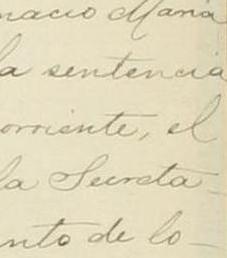 nacio Maria
la sentencia
orriente, el
la Secreta-
nto de lo-